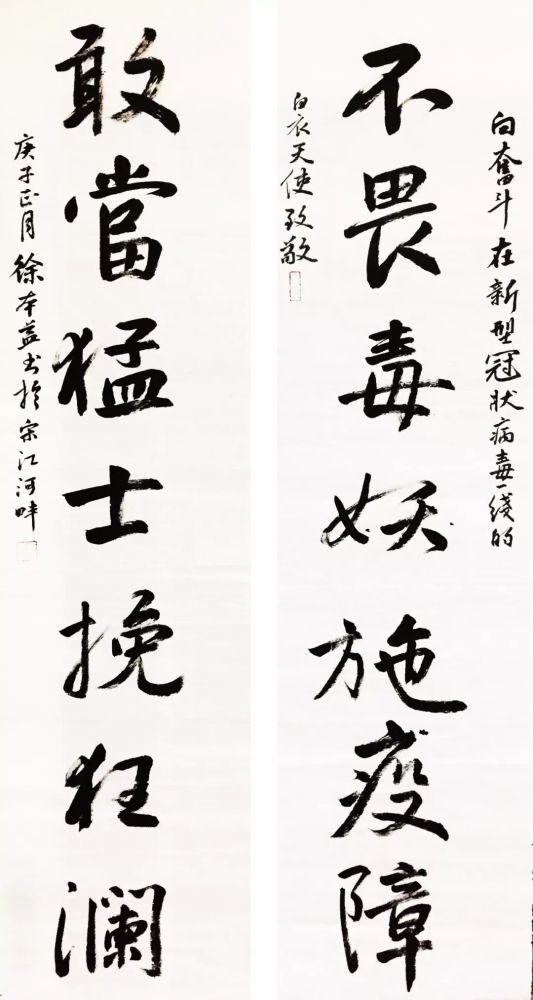 向奋斗在新型冠状病毒一线的
不畏毒妖施疫障
白衣天使致敬
敢當猛士挽狂澜
庚子正月徐本益书于宗江河畔